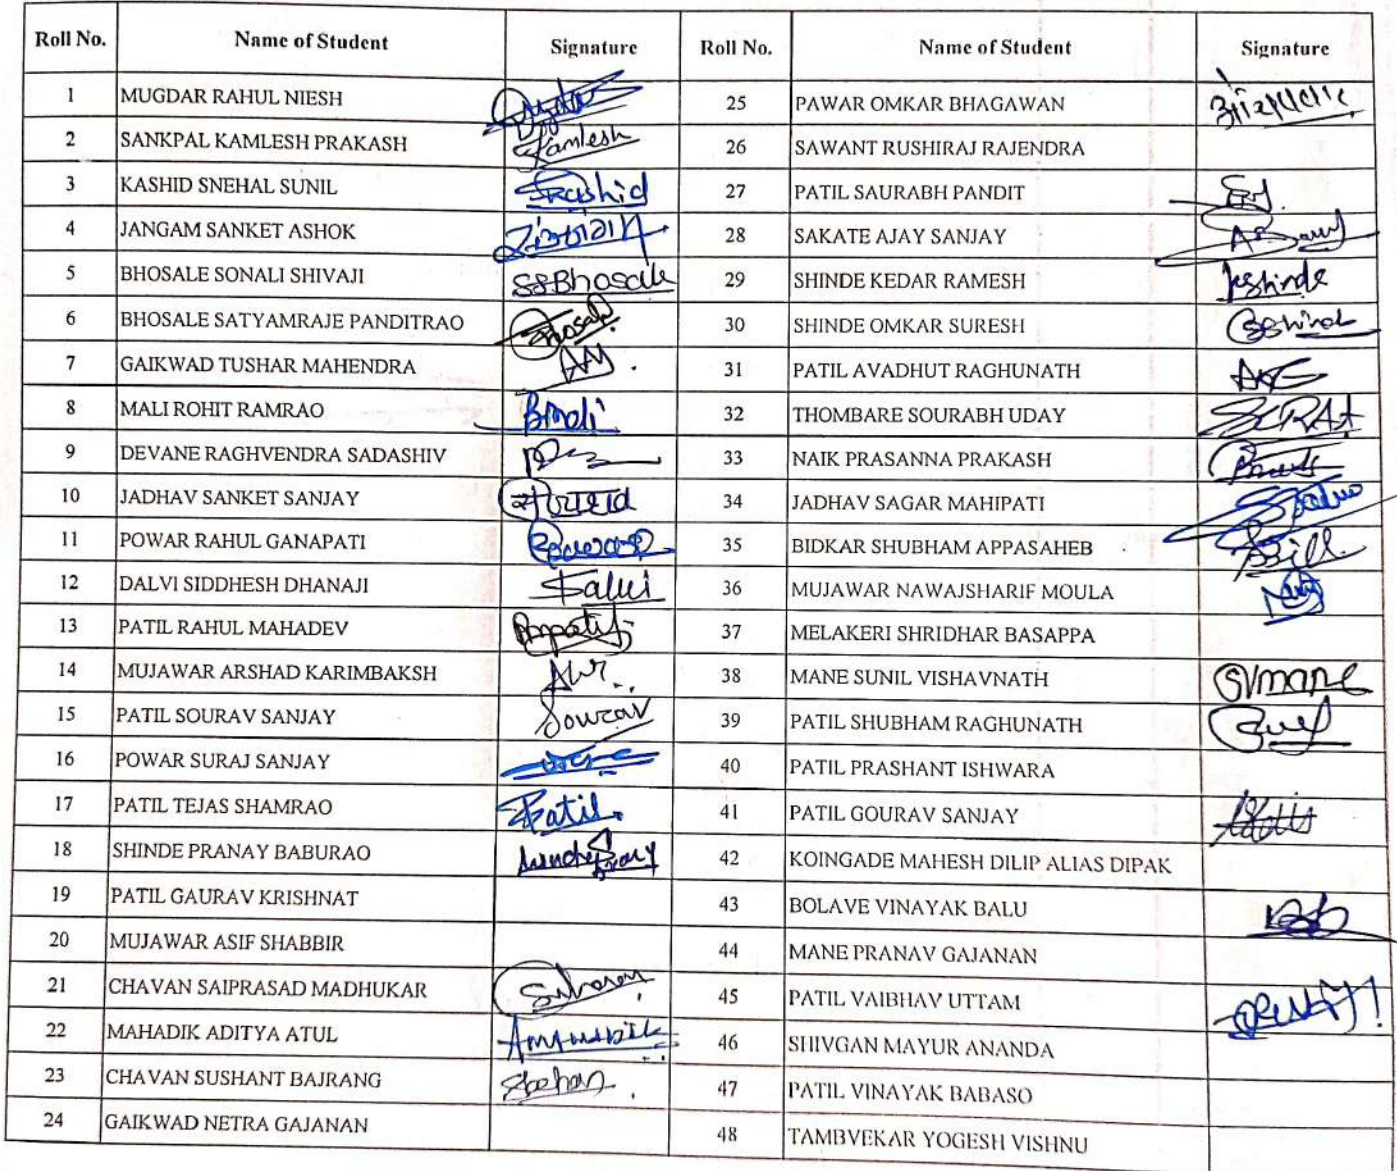 Roll No. Name of Student Signature Roll No. Name of Student Signature
1 MUGDAR RAHUL NIESH 25 PAWAR OMKAR BHAGAWAN
2 SANKPAL KAMLESH PRAKASH Kamlesh 26 SAWANT RUSHIRAJ RAJENDRA
3 KASHID SNEHAL SUNIL SKashid 27 PATIL SAURABH PANDIT
4 JANGAM SANKET ASHOK 28 SAKATE AJAY SANJAY
5 BHOSALE SONALI SHIVAJI SSBhosale 29 SHINDE KEDAR RAMESH kshinde
6 BHOSALE SATYAMRAJE PANDITRAO Bhosale 30 SHINDE OMKAR SURESH
7 GAIKWAD TUSHAR MAHENDRA 31 PATIL AVADHUT RAGHUNATH
8 MALI ROHIT RAMRAO 32 THOMBARE SOURABH UDAY
9 DEVANE RAGHVENDRA SADASHIV 33 NAIK PRASANNA PRAKASH
10 JADHAV SANKET SANJAY 34 JADHAV SAGAR MAHIPATI
11 POWAR RAHUL GANAPATI 35 BIDKAR SHUBHAM APPASAHEB
12 DALVI SIDDHESH DHANAJI 36 MUJAWAR NAWAJSHARIF MOULA
13 PATIL RAHUL MAHADEV 37 MELAKERI SHRIDHAR BASAPPA
14 MUJAWAR ARSHAD KARIMBAKSH 38 MANE SUNIL VISHAVNATH SVmane
15 PATIL SOURAV SANJAY Sourav 39 PATIL SHUBHAM RAGHUNATH
16 POWAR SURAJ SANJAY 40 PATIL PRASHANT ISHWARA
17 PATIL TEJAS SHAMRAO Patil 41 PATIL GOURAV SANJAY
18 SHINDE PRANAY BABURAO 42 KOINGADE MAHESH DILIP ALIAS DIPAK
19 PATIL GAURAV KRISHNAT 43 BOLAVE VINAYAK BALU
20 MUJAWAR ASIF SHABBIR 44 MANE PRANAV GAJANAN
21 CHAVAN SAIPRASAD MADHUKAR 45 PATIL VAIBHAV UTTAM
22 MAHADIK ADITYA ATUL 46 SHIVGAN MAYUR ANANDA
23 CHAVAN SUSHANT BAJRANG 47 PATIL VINAYAK BABASO
24 GAIKWAD NETRA GAJANAN 48 TAMBVEKAR YOGESH VISHNU